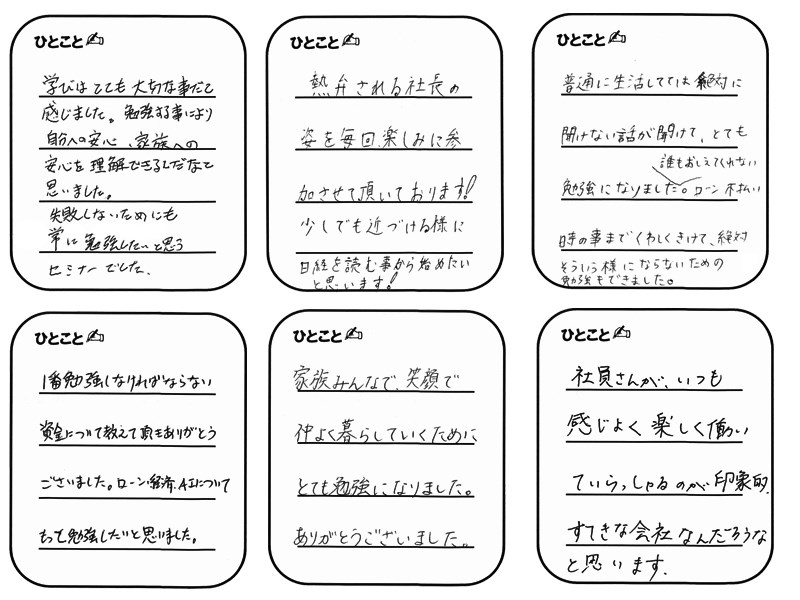 ひとこと
学びは とても 大切な事だと
感じました。勉強する事により
自分への安心、家族への
安心を 理解できるしだなと
思いました。
失敗しないためにも
常に 勉強したいと思う
セミナーでした。
ひとこと
熱弁される社長の
姿を毎回、楽しみに参
加させて頂いております!
少しでも近づける様に
日経を読む事から始めたい
と思います!
ひとこと
普通に生活してては 絶対に
聞けない話が聞けて、とても
誰もおしえてくれない
勉強になりました。ローン 未払い
時の事までくわしくきけて、絶対
そういう様にならないための
勉強もできました。
ひとこと
1番勉強しなければならない
資金について教えて頂きありがとう
ございました。ローン・経済、AIについて
もっと勉強したいと思いました。
ひとこと
家族みんなで、笑顔で
仲よく暮らしていくために
とても勉強になりました。
ありがとうございました。
ひとこと
社員さんが、いつも
感じよく 楽しく働い
ていらっしゃるのが 印象的。
すてきな会社なんだろうな
と思います。